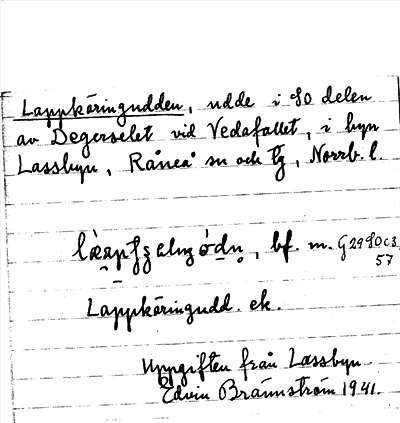 Lappkäringudden, udde i SO delen
av Degerselet vid Vedafallet, i byn
Lassbyn, Råneå sn och tg, Norrb. l.
bf. m. G29SOc3
57
Lappkäringudd. ek.
Uppgiften från Lassbyn
Edvin Brännström 1941.